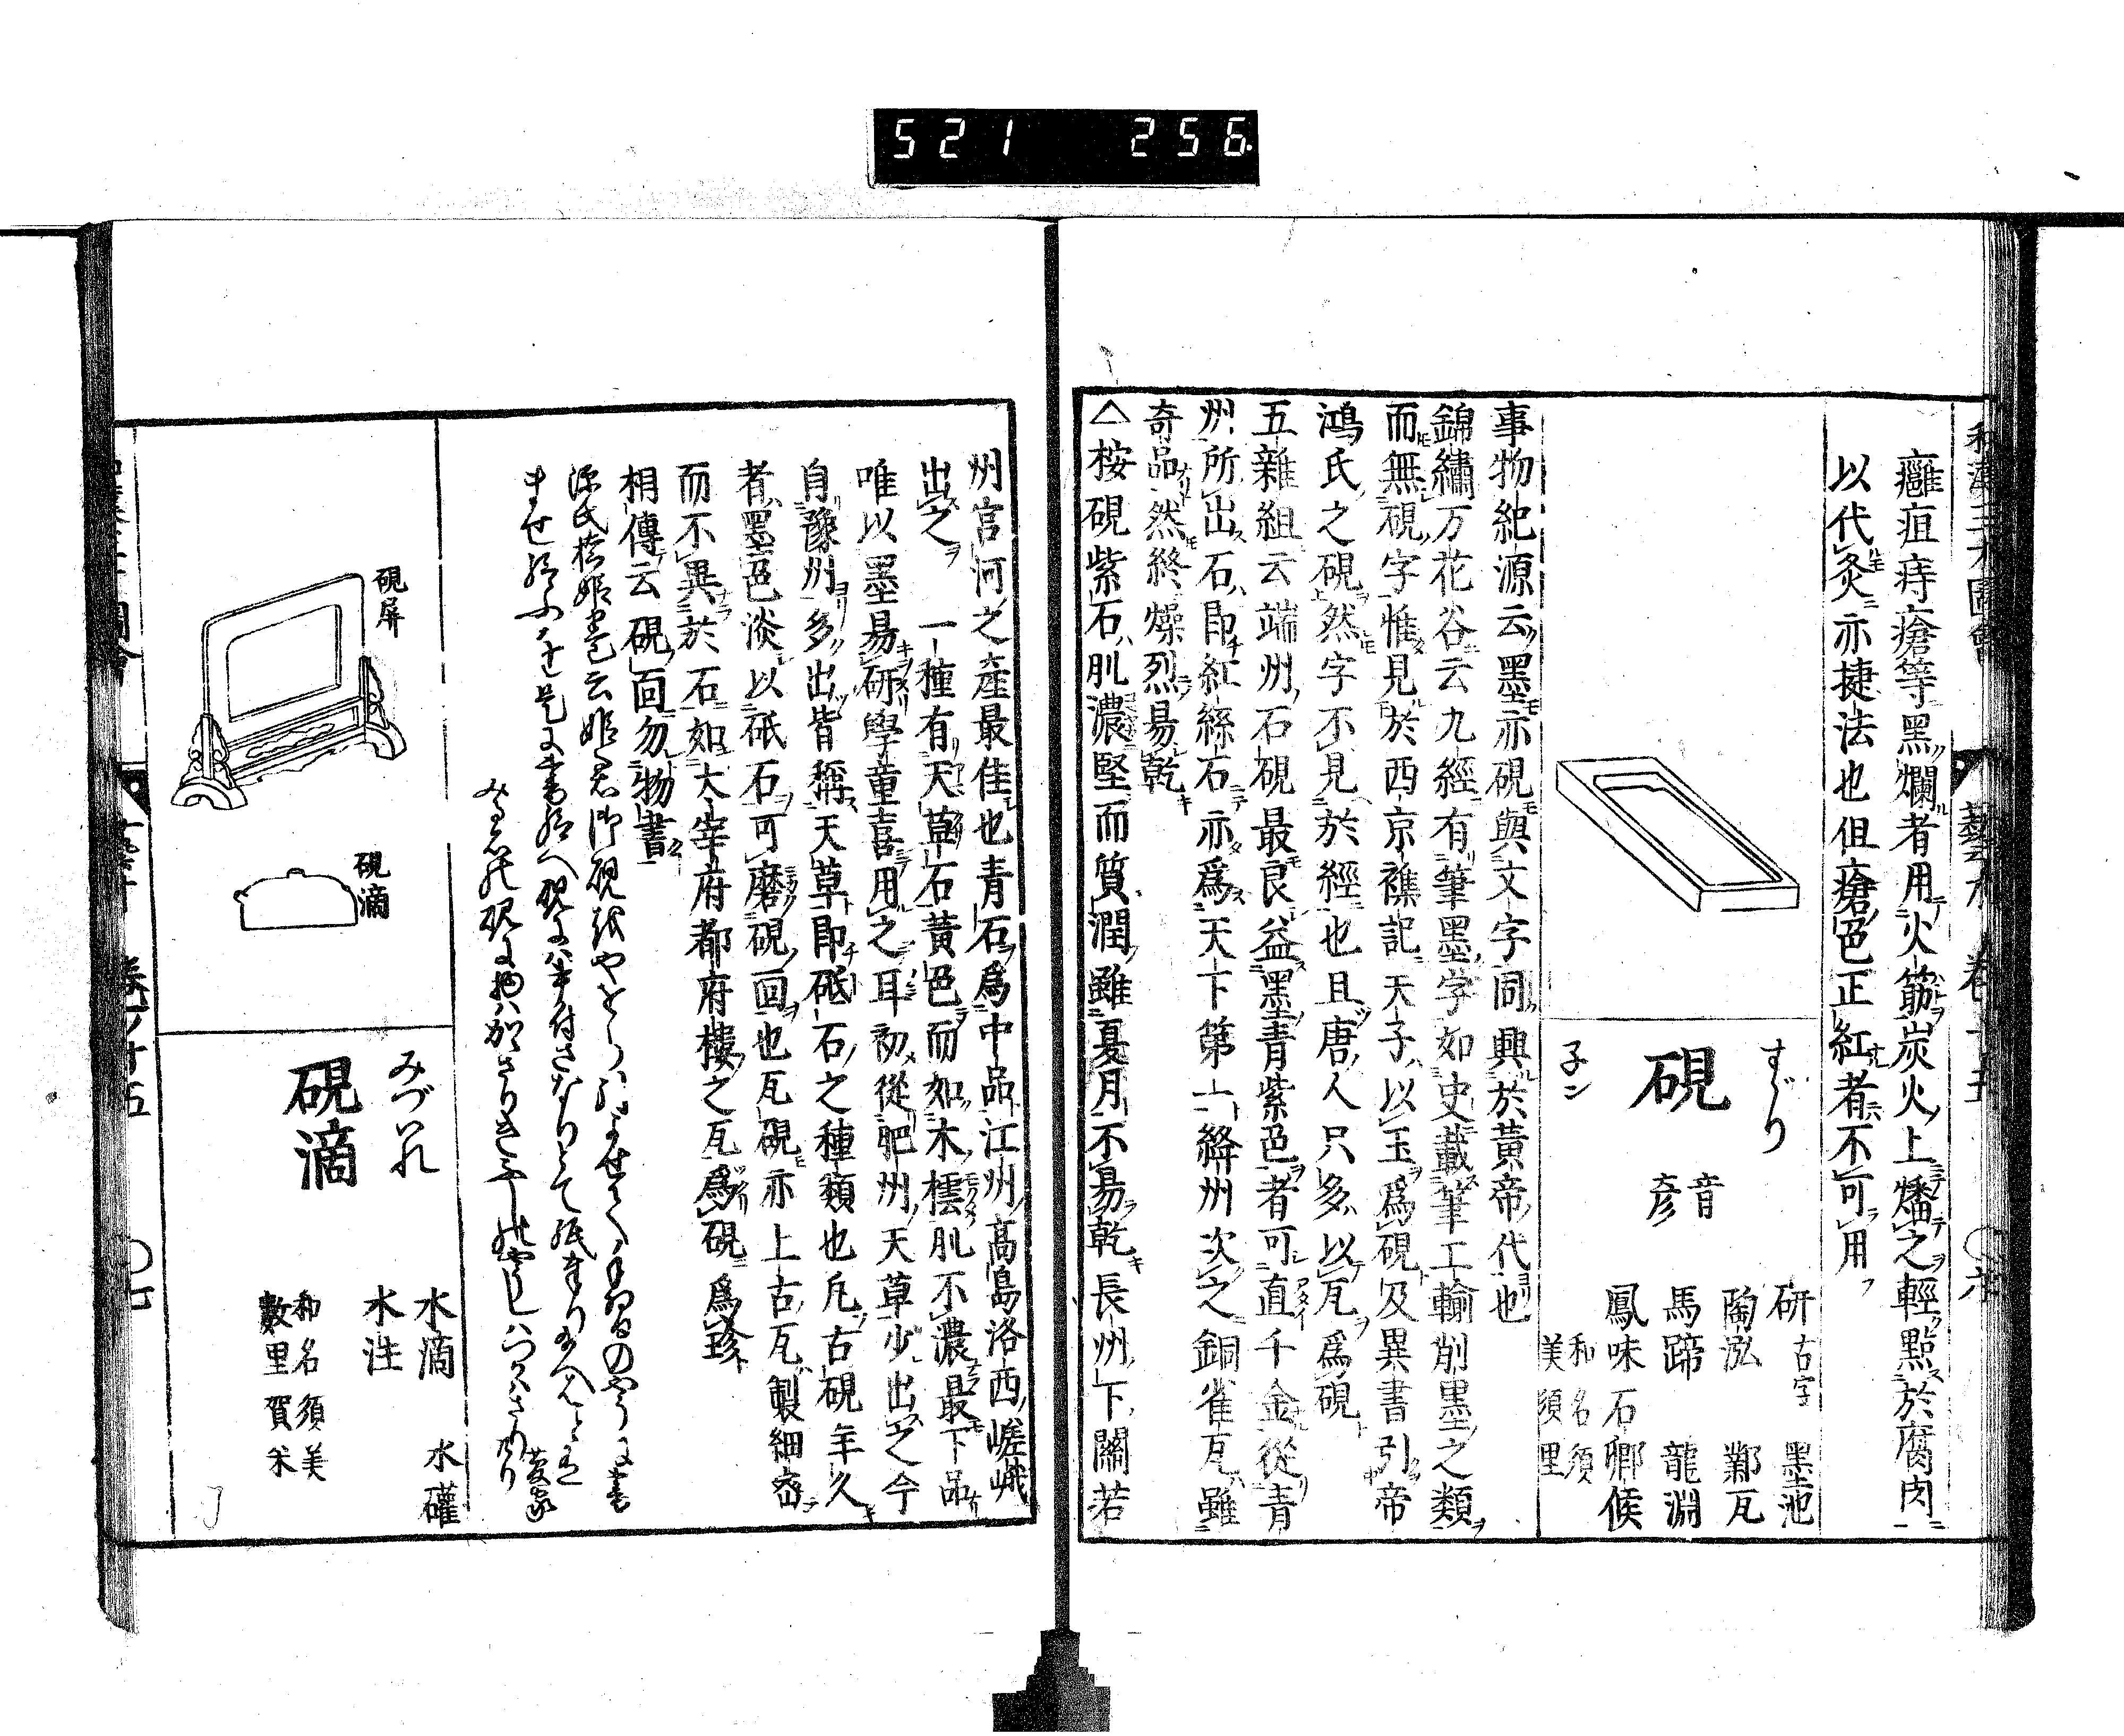 521 256
和漢三才圖會 藝才 卷十五 〇六
癰疽痔瘡等黑爛者用火筯炭火上燔之輕點於腐肉
以代灸亦捷法也但瘡色正紅者不可用
すゞり
硯
音彥
子ン
研 古字 墨池
陶泓 鄴瓦
馬蹄 龍淵
鳳味 石鄉候
和名須
美須里
事物紀源云墨亦硯與文字同興於黃帝代也
錦繡万花谷云九經有筆墨字如史載筆工輸削墨之類
而無硯字惟見於西京襍記天子以玉爲硯及異書引帝
鴻氏之硯然字不見於經也且唐人只多以瓦爲硯
五雜組云端州石硯最良益墨青紫色者可直千金從青
州所出石即紅絲石亦爲天下第一絳州次之銅雀瓦雖
奇品然終燥烈易乾
△按硯紫石肌濃堅而質潤雖夏月不易乾長州下關若
州宮河之產最佳也青石爲中品江州高島洛西嵯峨
出之 一種有天草石黃色而如木橒肌不濃最下品
唯以墨易研學童喜用之耳初從肥州天草少出之今
自豫州多出皆稱天草即砥石之種類也凡古硯年久
者墨色淡以砥石可磨硯面也瓦硯亦上古瓦製細密
而不異於石如大宰府都府樓之瓦爲硯爲珍
相傳云硯面勿物書
硯屏
硯滴
みづいれ
硯滴
水滴 水罐
水注
和名須美
數里賀米